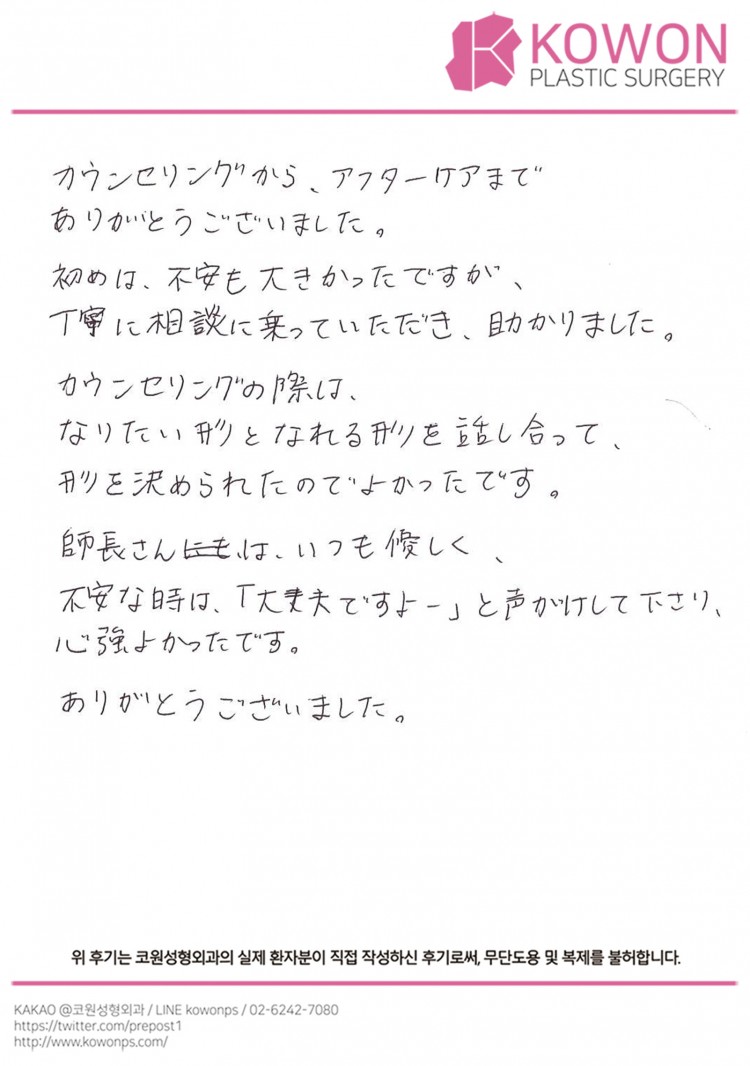 KOWON
PLASTIC SURGERY
カウンセリングから、アフターケアまで
ありがとうございました。
初めは、不安も大きかったですが、
丁寧に相談に乗っていただき、助かりました。
カウンセリングの際は、
なりたい形となれる形を話し合って、
形を決められたのでよかったです。
師長さんにもは、いつも優しく、
不安な時は、「大丈夫ですよー」と声がけして下さり、
心強よかったです。
ありがとうございました。
위 후기는 코원성형외과의 실제 환자분이 직접 작성하신 후기로써, 무단도용 및 복제를 불허합니다.
KAKAO @코원성형외과 / LINE kowonps / 02-6242-7080
https://twitter.com/prepost1
http://www.kowonps.com/